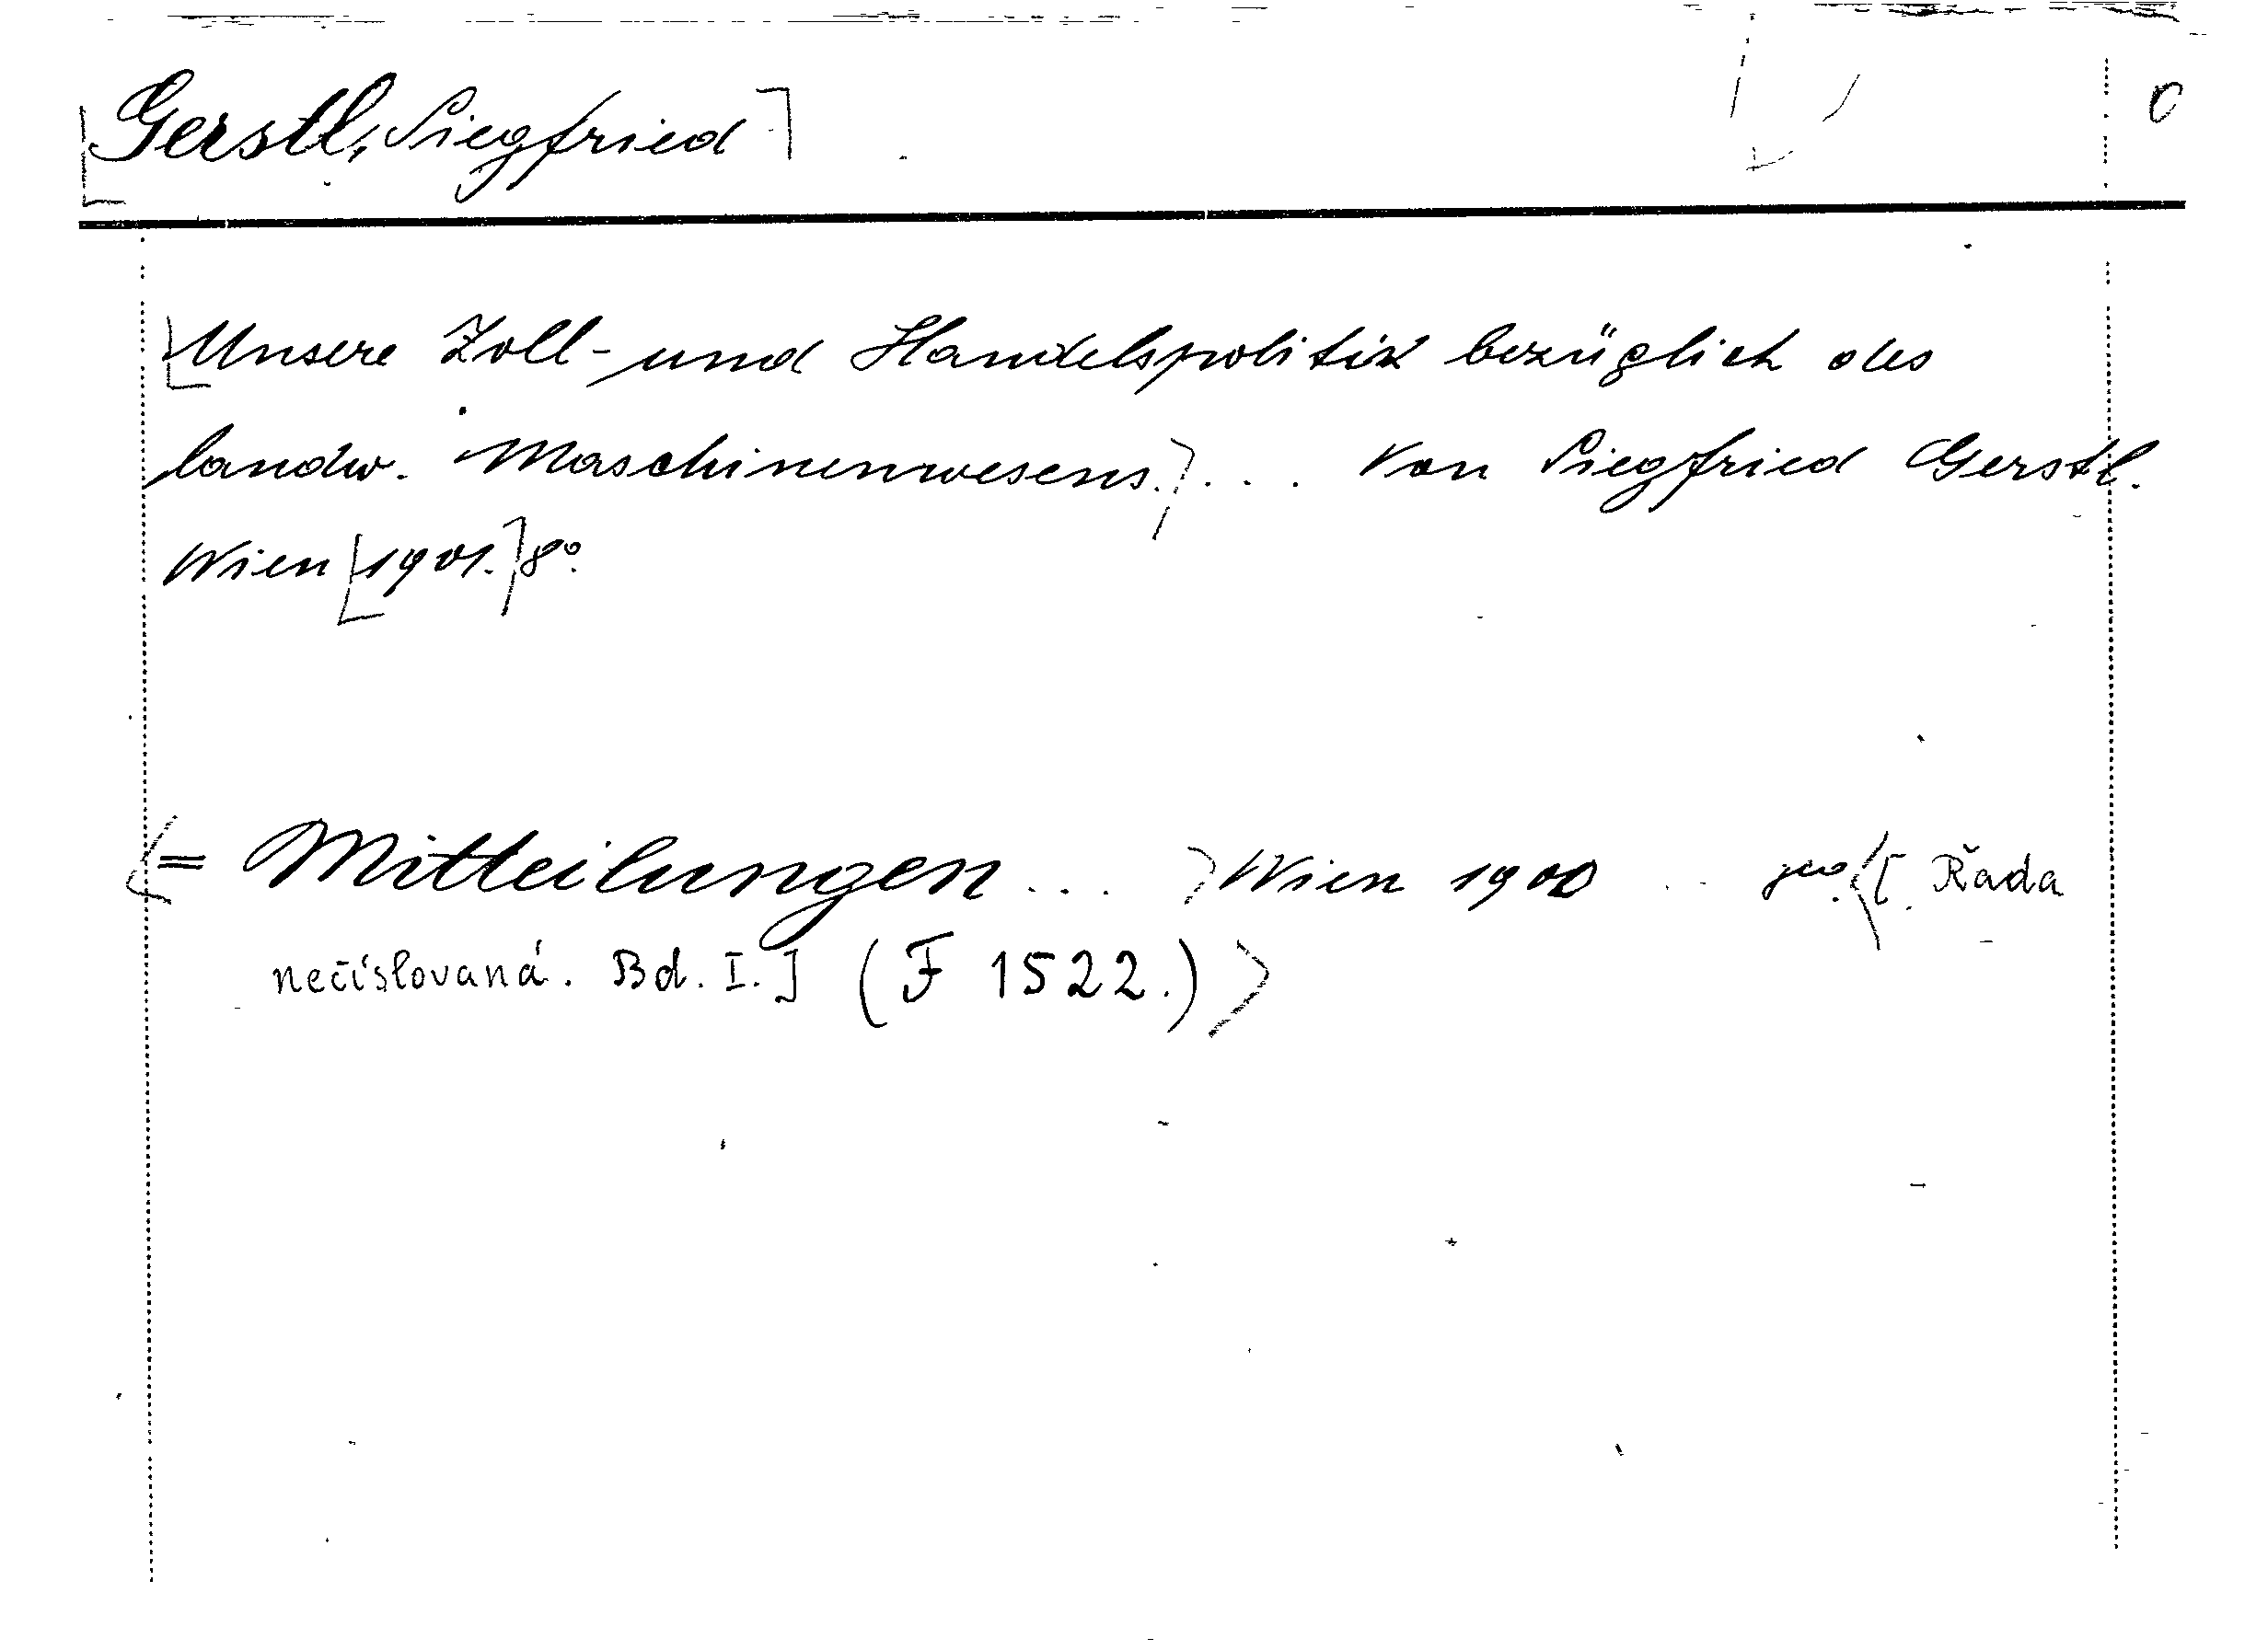 [Gerstl, Siegfried] 0
[Unsere Zoll- und Handelspolitik bezüglich des
landw. Maschinenwesens.] ... Von Siegfried Gerstl.
Wien [1901.] 8°.
<= Mitteilungen ... > Wien 1900 .. < [Řada
nečíslovaná. Bd. I.] (F 1522.)>